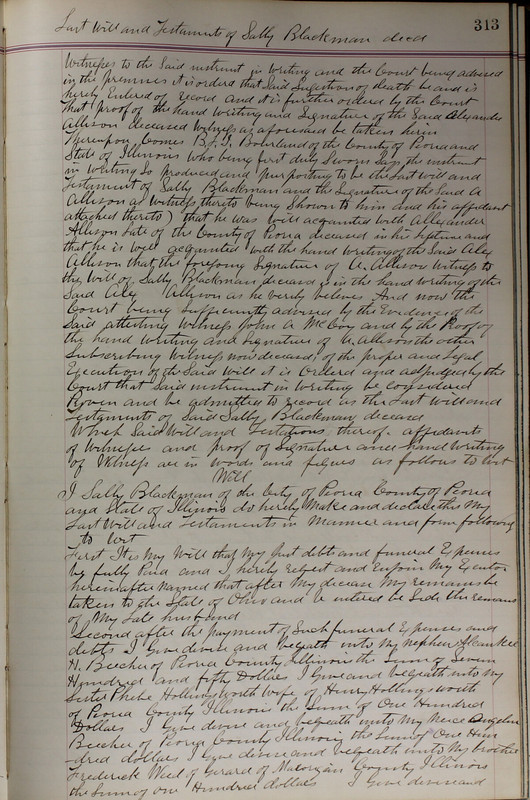 Last Will and Testaments of Sally Blackman decd
313
Witnesses to the Said instrumt in Writing and the Court being advised
in the premises it is orderd that Said Sugestions of death be and is
hereby Entered of record and it is further ordered by the Court
that proof of the hand Writing and Signature of the Said Alexander
Allison deceased Witness as aforesaid be taken herein
Thereupon Comes B. F. Bourland of the County of Peoria and
State of Illinois who being first duly Sworn Says the instrumt
in writing So produced and purporting to be the Last will and
Testament of Sally Blackman and the Signature of the Said A
Allison as Witness thereto being Shown to him and his affidavit
attached thereto) that he was well acquainted with Allexander
Allison Late of the County of Peoria deceased in his lifetime and
that he is well acquainted with the hand Writing of the Said Alex
Allison that the foregoing Signature of A. Allison Witness to
the Will of Sally Blackman deceased is in the hand writing of the
Said Alex Allison as he verily believes And now the
Court being Sufficiently advised by the Evidence of the
Said attesting Witness John A McCoy and by the Proof of
the hand Writing and Signature of A. Allison the other
Subscribing Witness now deceased, of the proper and Legal
Execution of the Said Will it is Ordered and adjudged by the
Court that Said instrument in Writing be considered
Proven and be admitted to record as the Last Will and
Testaments of Said Sally Blackman deceased
Which Said Will and thereof affidavits
of Witnesses and proof of Signature and hand Writing
of Witness are in words and figures as follows to Wit
Will
I Sally Blackman of the City of Peoria County of Peoria
and State of Illinois do hereby Make and declare this My
Last Will and Testaments in Manner and form following
to Wit
First It is My Will that My Just debts and funeral Expenses
be fully Paid and I hereby request and Enjoin My Executor
hereinafter named that after My decease My remains be
taken to the State of Ohio and be intered be Side the remains
of My Late husband
Second after the payment of Such funeral Expenses and
debts I Give devise and bequeath unto My nephew
H. Beecher of Peoria County Illinois the Sum of Seven
Hundred and fifty Dollars I Give and bequeath unto my
Sister Phebe Hollingsworth Wife of Henry Hollingsworth
of Peoria County Illinois the Sum of One Hundred
Dollars I Give devise and bequeath unto My Neice Angeline
Beecher of Peoria County Illinois the Sum of One Hun
-dred dollars I Give devise and bequeath unto My brother
Frederick Weed of Gerard of County Illinois
the Sum of one Hundred dollars I Give devise and